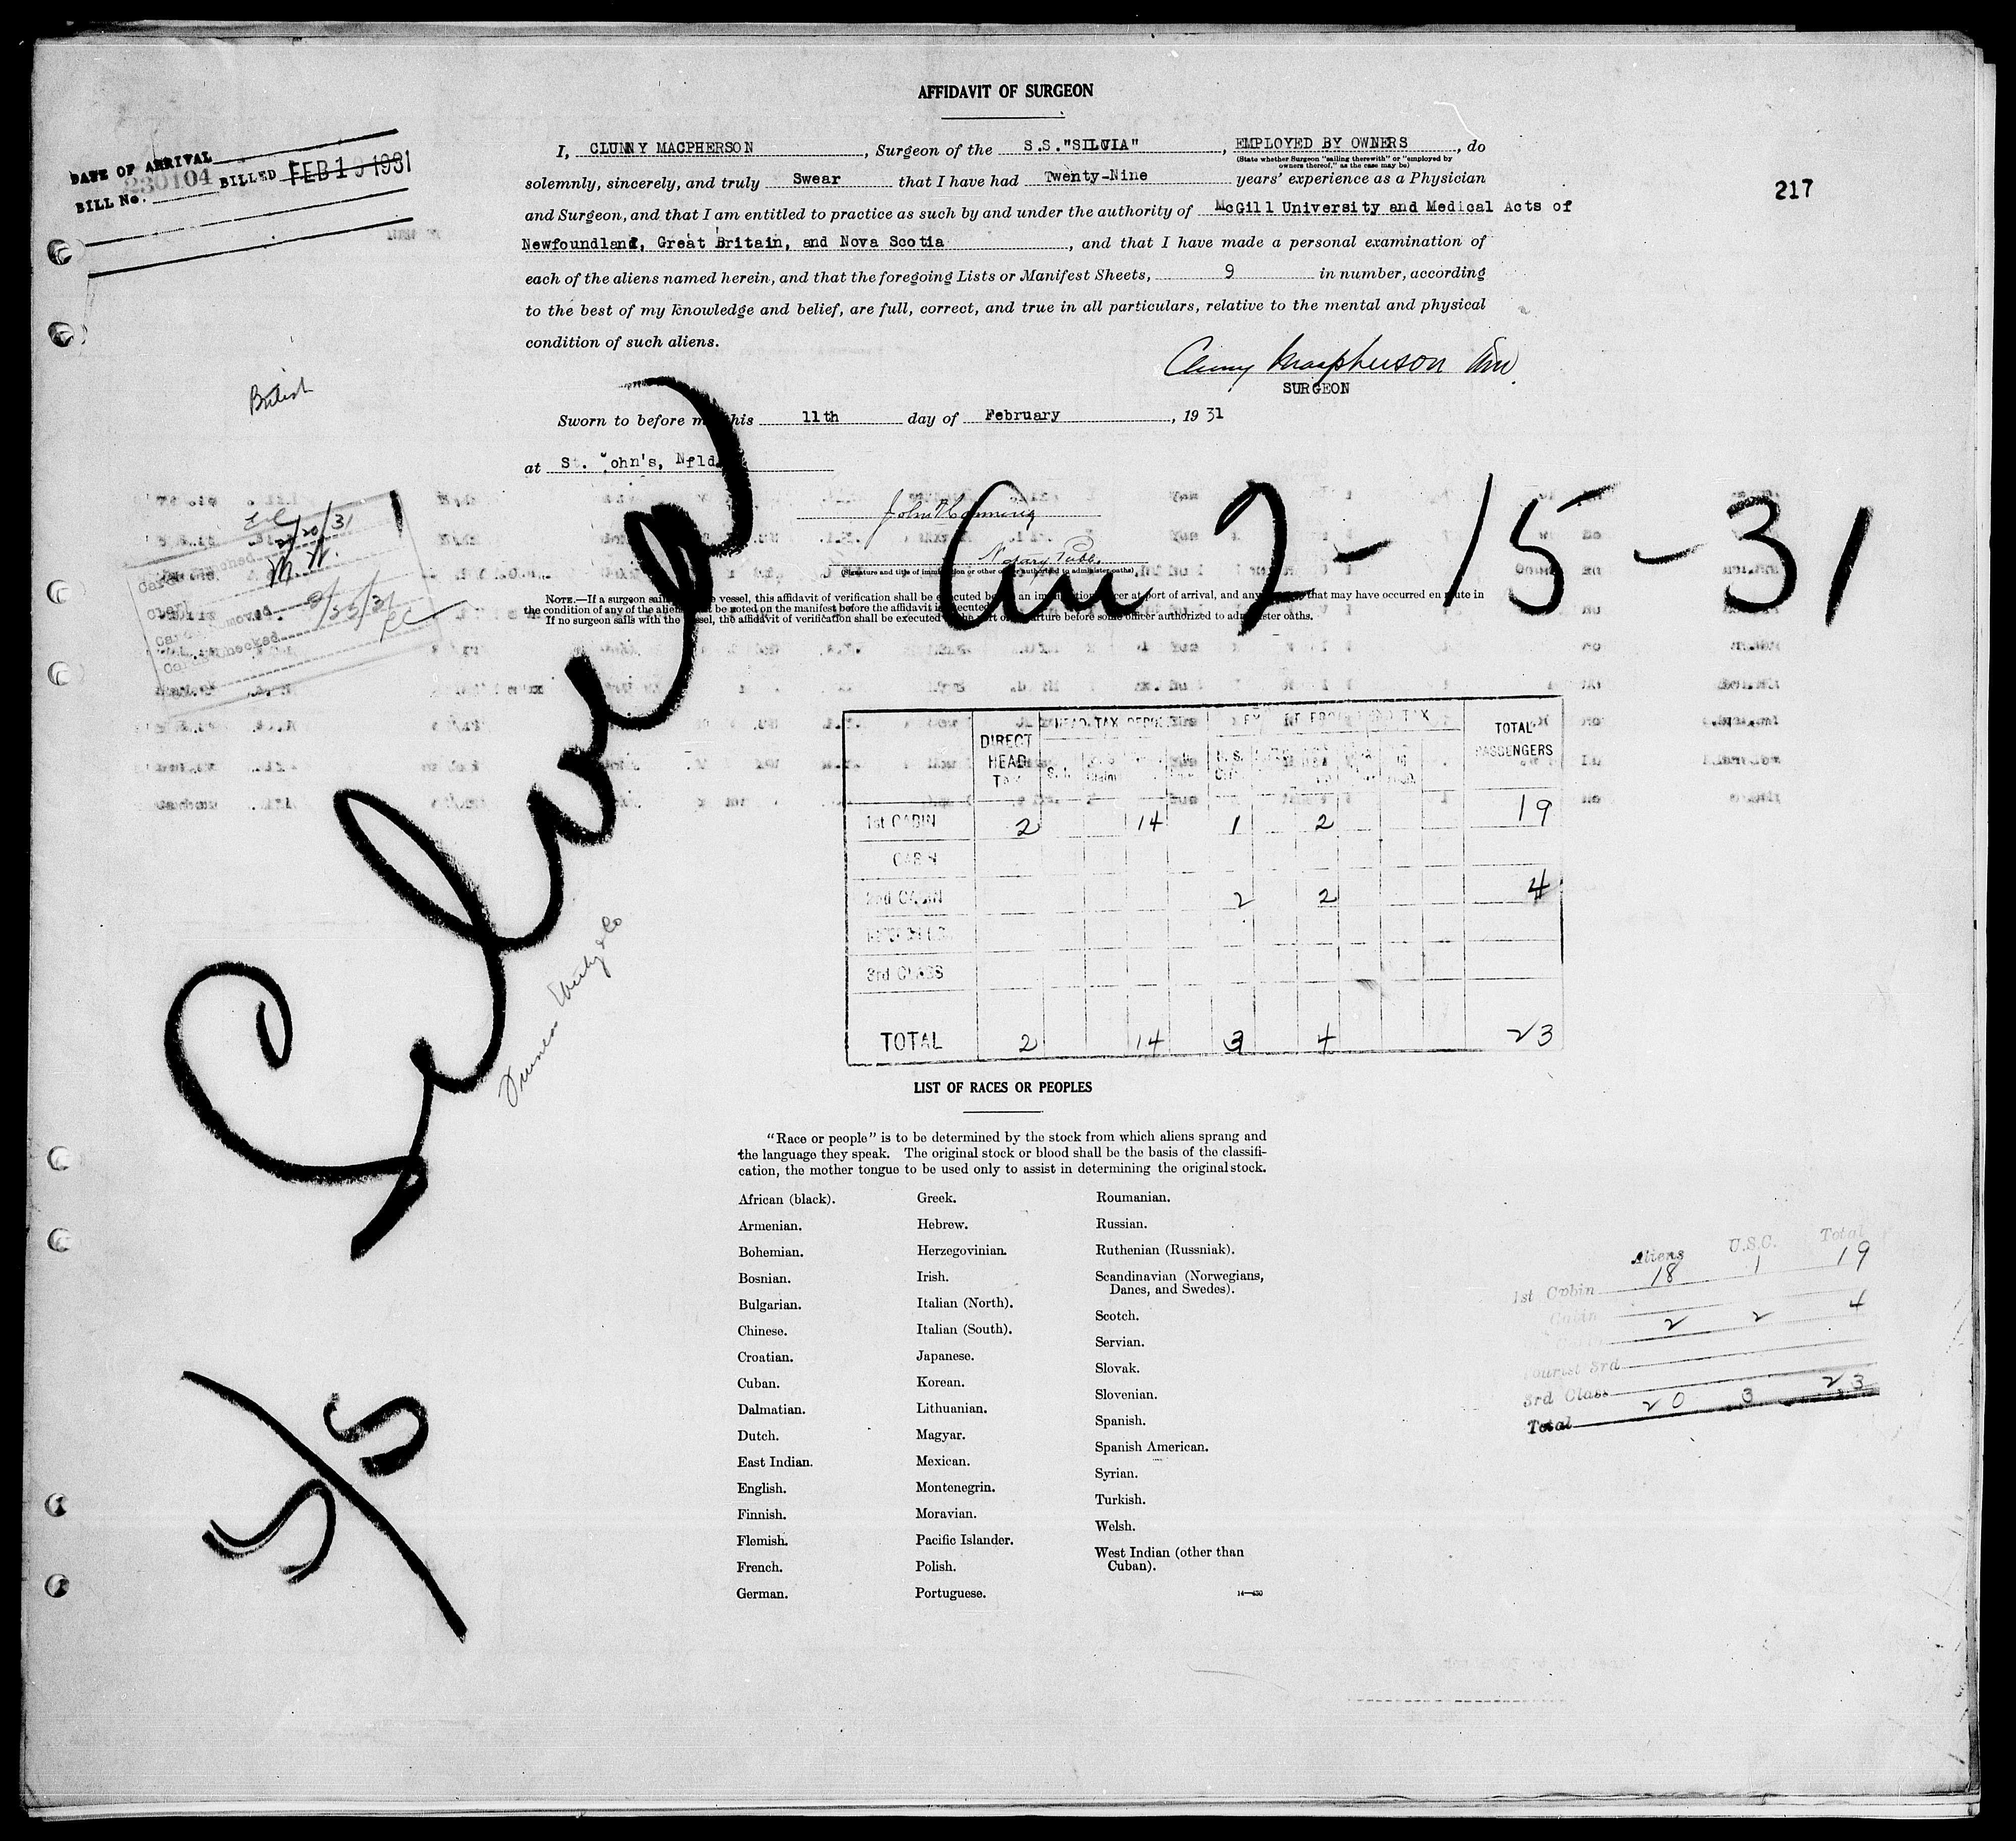 AFFIDAVIT OF SURGEON
DATE OF ARRIVAL
BILL No. 230104 BILLED FEB 19 1931
217
I, CLUNNY MACPHERSON, Surgeon of the S.S."SILVIA", EMPLOYED BY OWNERS, do
(State whether Surgeon "sailing therewith" or "employed by
owners thereof," as the case may be)
solemnly, sincerely, and truly Swear that I have had Twenty-Nine years' experience as a Physician
and Surgeon, and that I am entitled to practice as such by and under the authority of McGill University and Medical Acts of
Newfoundland, Great Britain, and Nova Scotia, and that I have made a personal examination of
each of the aliens named herein, and that the foregoing Lists or Manifest Sheets, 9 in number, according
to the best of my knowledge and belief, are full, correct, and true in all particulars, relative to the mental and physical
condition of such aliens.
Cluny Macpherson
SURGEON
British
Sworn to before me this 11th day of February, 1931
at St. John's, Nfld
Notary Publ.
(Signature and title of immigration or other officer authorized to administer oaths)
2/20/31
Silvia
2-15-31
NOTE.—If a surgeon sails the vessel, this affidavit of verification shall be executed before an immigration officer at port of arrival, and any that may have occurred en route in
the condition of any of the aliens must be noted on the manifest before the affidavit is executed.
If no surgeon sails with the vessel, the affidavit of verification shall be executed at the port of departure before some officer authorized to administer oaths.
DIRECT HEAD TAX
HEAD TAX
TOTAL PASSENGERS
1st CABIN 2 14 1 2 19
CABIN
2nd CABIN 2 2 4
3rd CLASS
TOTAL 2 14 3 4 23
LIST OF RACES OR PEOPLES
"Race or people" is to be determined by the stock from which aliens sprang and
the language they speak. The original stock or blood shall be the basis of the classifi-
cation, the mother tongue to be used only to assist in determining the original stock.
African (black).
Armenian.
Bohemian.
Bosnian.
Bulgarian.
Chinese.
Croatian.
Cuban.
Dalmatian.
Dutch.
East Indian.
English.
Finnish.
Flemish.
French.
German.
Greek.
Hebrew.
Herzegovinian.
Irish.
Italian (North).
Italian (South).
Japanese.
Korean.
Lithuanian.
Magyar.
Mexican.
Montenegrin.
Moravian.
Pacific Islander.
Polish.
Portuguese.
Roumanian.
Russian.
Ruthenian (Russniak).
Scandinavian (Norwegians,
Danes, and Swedes).
Scotch.
Servian.
Slovak.
Slovenian.
Spanish.
Spanish American.
Syrian.
Turkish.
Welsh.
West Indian (other than
Cuban).
Aliens U.S.C. Total
1st Cabin 18 1 19
Cabin 2 2 4
Tourist 3rd
3rd Class
Total 20 3 23
S/S